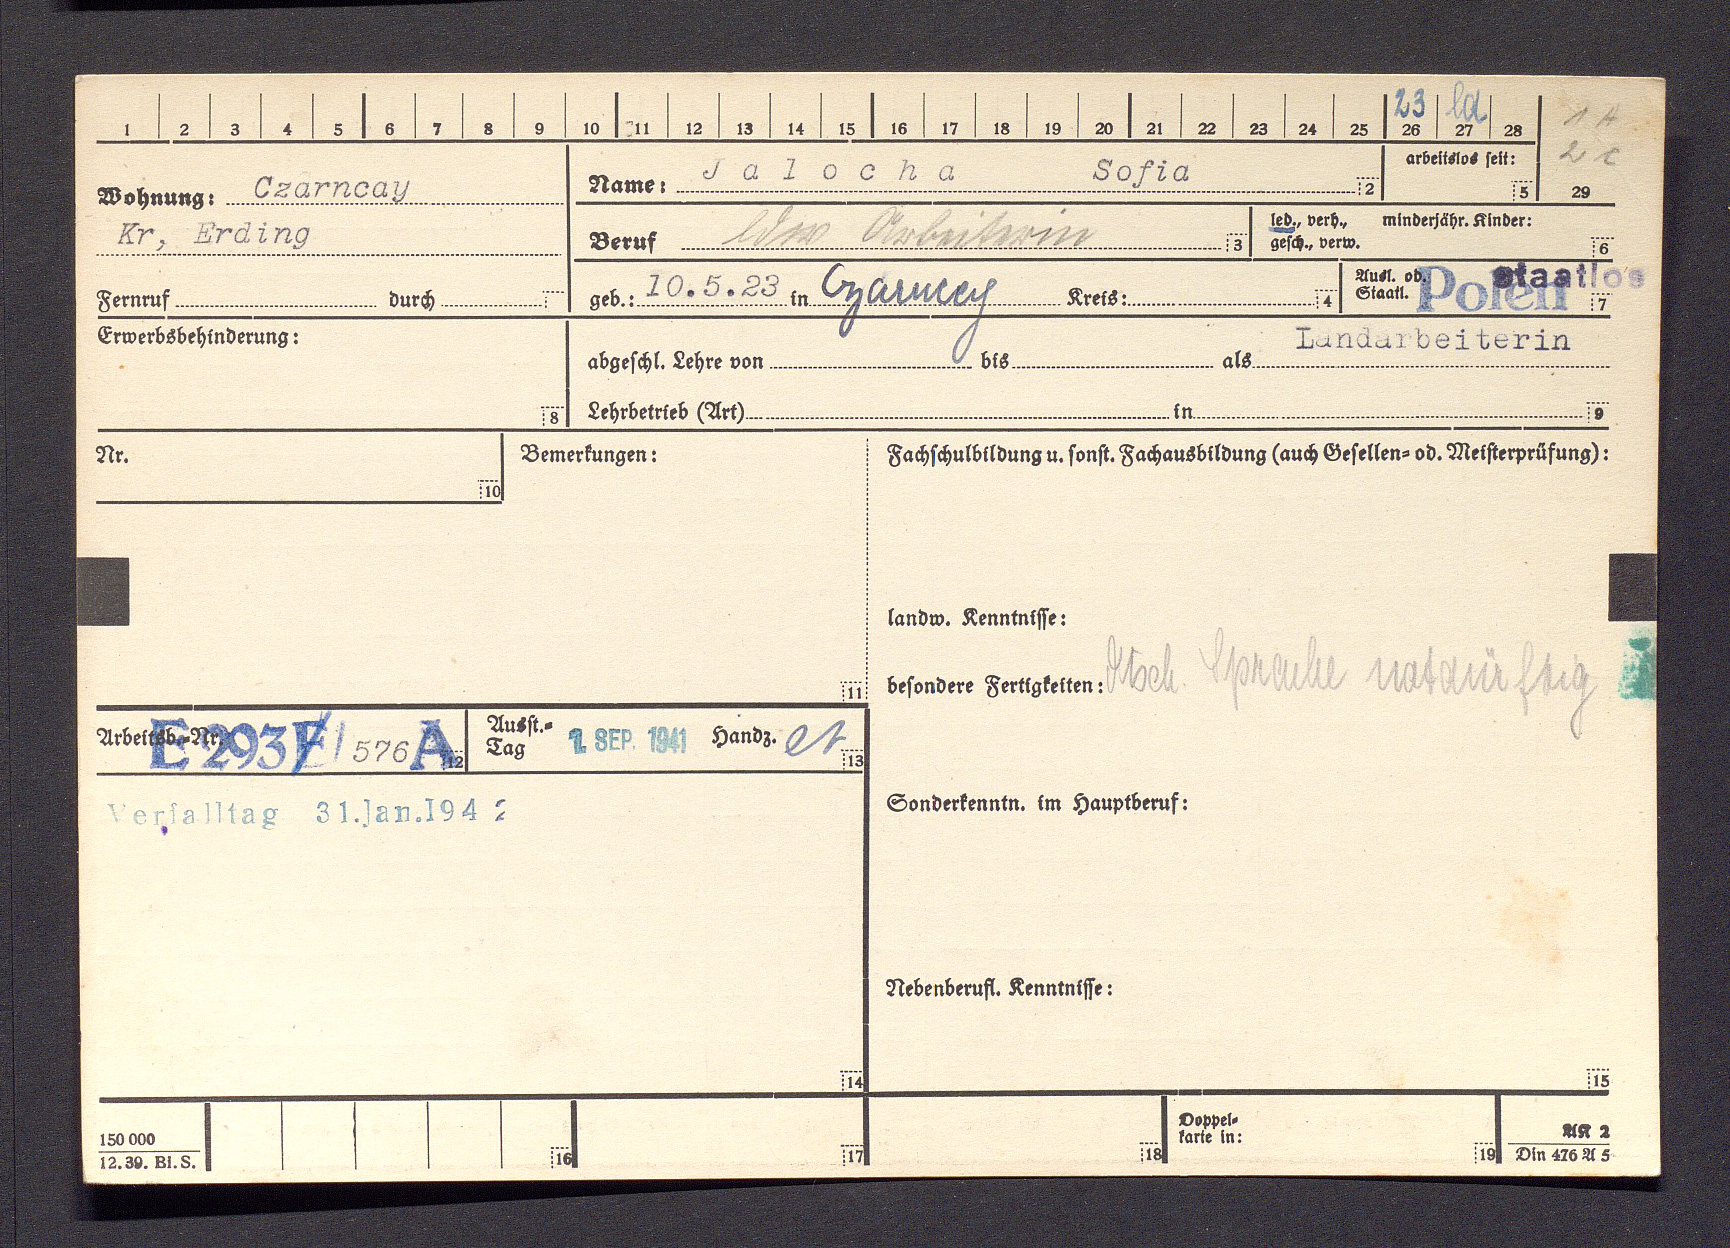 23 ld
1 2 3 4 5 6 7 8 9 10 11 12 13 14 15 16 17 18 19 20 21 22 23 24 25 26 27 28
1 A
2 c
29
Wohnung: Czarncay
Kr, Erding
Name: Jalocha Sofia 2
arbeitslos seit: 5
Beruf ldw Arbeiterin 3
led., verh., minderjähr. Kinder:
gesch., verw. 6
Fernruf durch
geb.: 10.5.23 in Czarncey Kreis: 4
Ausl. od. Polen staatlos
Staatl. 7
Erwerbsbehinderung:
8
Landarbeiterin
abgeschl. Lehre von bis als
Lehrbetrieb (Art) in 9
Nr.
10
Bemerkungen:
11
Fachschulbildung u. sonst. Fachausbildung (auch Gesellen- od. Meisterprüfung):
landw. Kenntnisse:
besondere Fertigkeiten: Dtsch. Sprache notdürftig
Arbeitsb.-Nr. E 293 576 A 12
Ausst.-
Tag 1. SEP. 1941 Handz. 13
Verfalltag 31.Jan.194 2
Sonderkenntn. im Hauptberuf:
Nebenberufl. Kenntnisse:
14
15
150 000
12.39. Bl. S.
16
17
18
Doppel-
karte in:
19
AK 2
Din 476 A 5